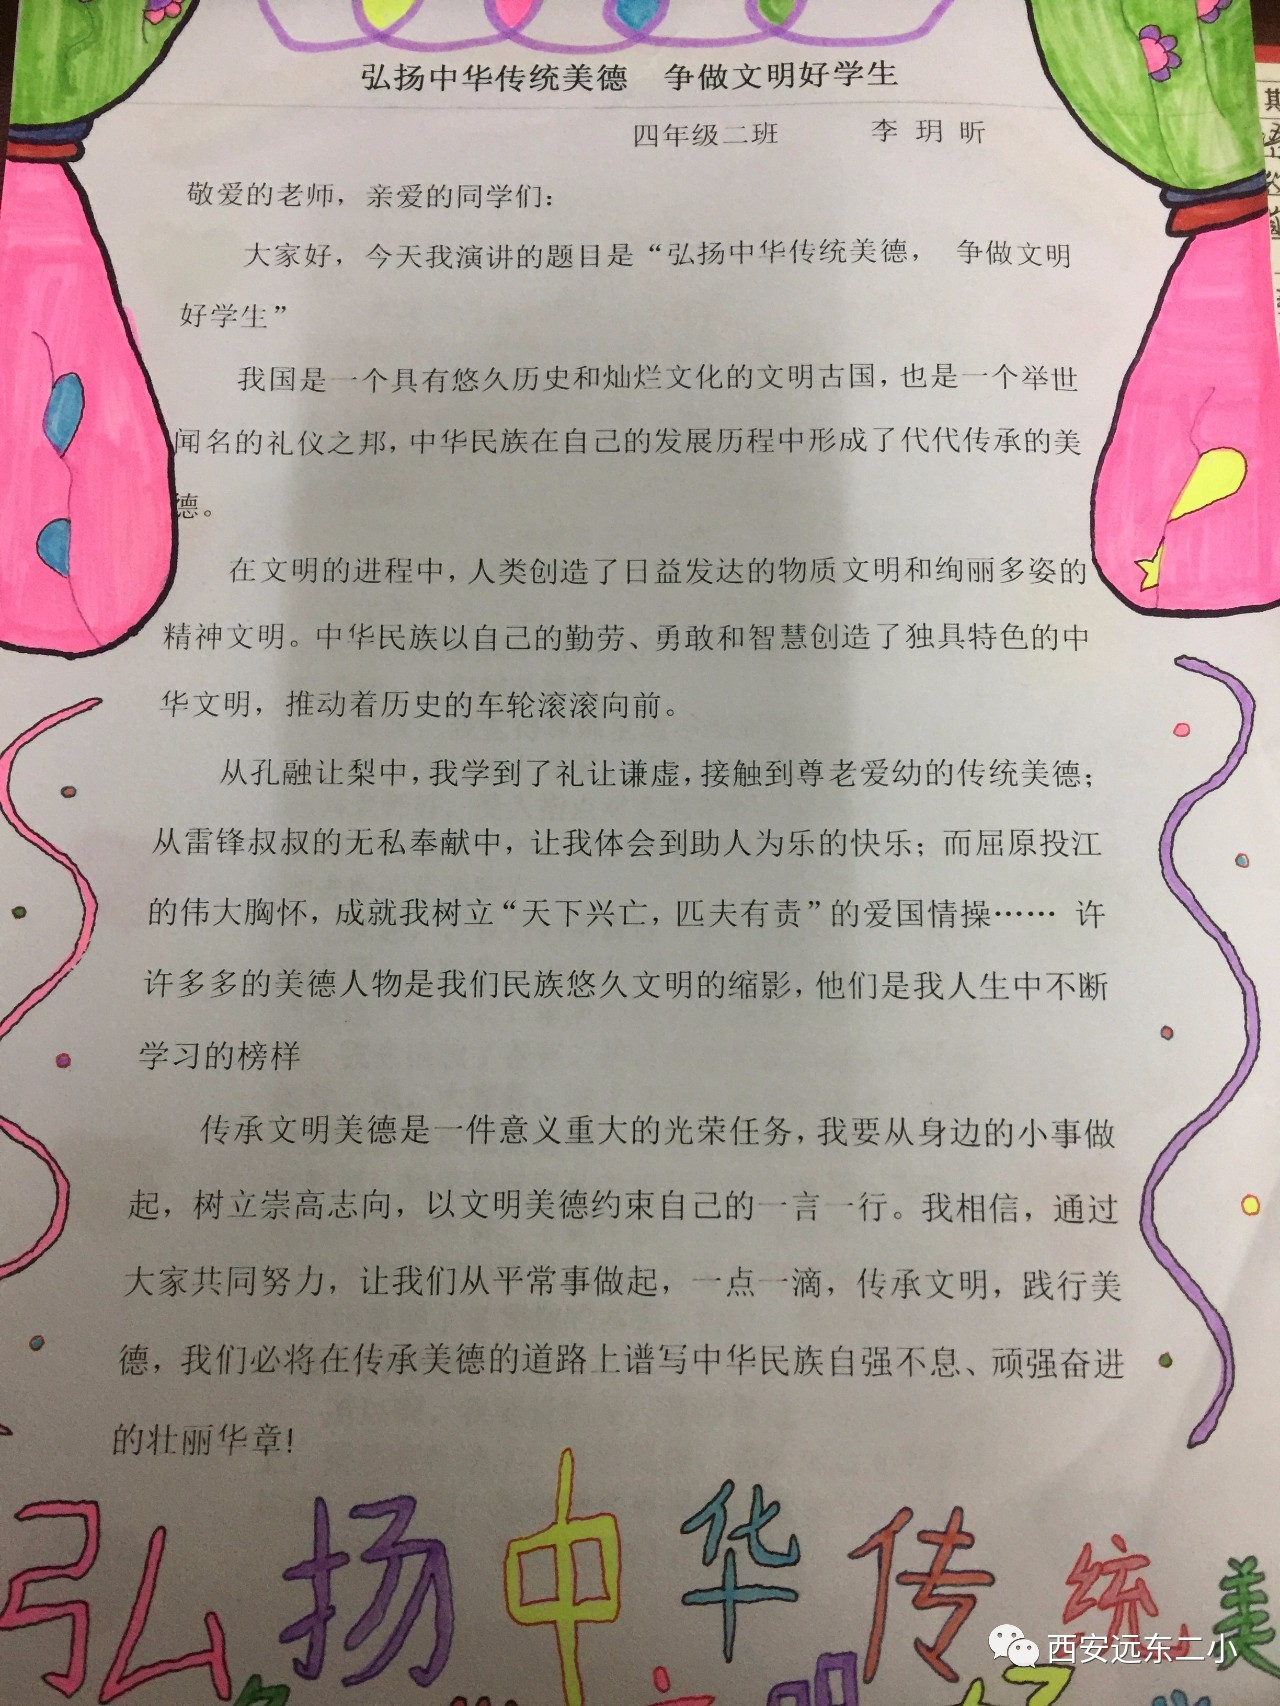 弘扬中华传统美德　争做文明好学生
四年级二班　李 玥 昕
敬爱的老师，亲爱的同学们：
大家好，今天我演讲的题目是“弘扬中华传统美德， 争做文明
好学生”
我国是一个具有悠久历史和灿烂文化的文明古国，也是一个举世
闻名的礼仪之邦，中华民族在自己的发展历程中形成了代代传承的美
德。
在文明的进程中，人类创造了日益发达的物质文明和绚丽多姿的
精神文明。中华民族以自己的勤劳、勇敢和智慧创造了独具特色的中
华文明，推动着历史的车轮滚滚向前。
从孔融让梨中，我学到了礼让谦虚，接触到尊老爱幼的传统美德；
从雷锋叔叔的无私奉献中，让我体会到助人为乐的快乐；而屈原投江
的伟大胸怀，成就我树立“天下兴亡，匹夫有责”的爱国情操…… 许
许多多的美德人物是我们民族悠久文明的缩影，他们是我人生中不断
学习的榜样
传承文明美德是一件意义重大的光荣任务，我要从身边的小事做
起，树立崇高志向，以文明美德约束自己的一言一行。我相信，通过
大家共同努力，让我们从平常事做起，一点一滴，传承文明，践行美
德，我们必将在传承美德的道路上谱写中华民族自强不息、顽强奋进
的壮丽华章!
弘扬中华传统美
西安远东二小